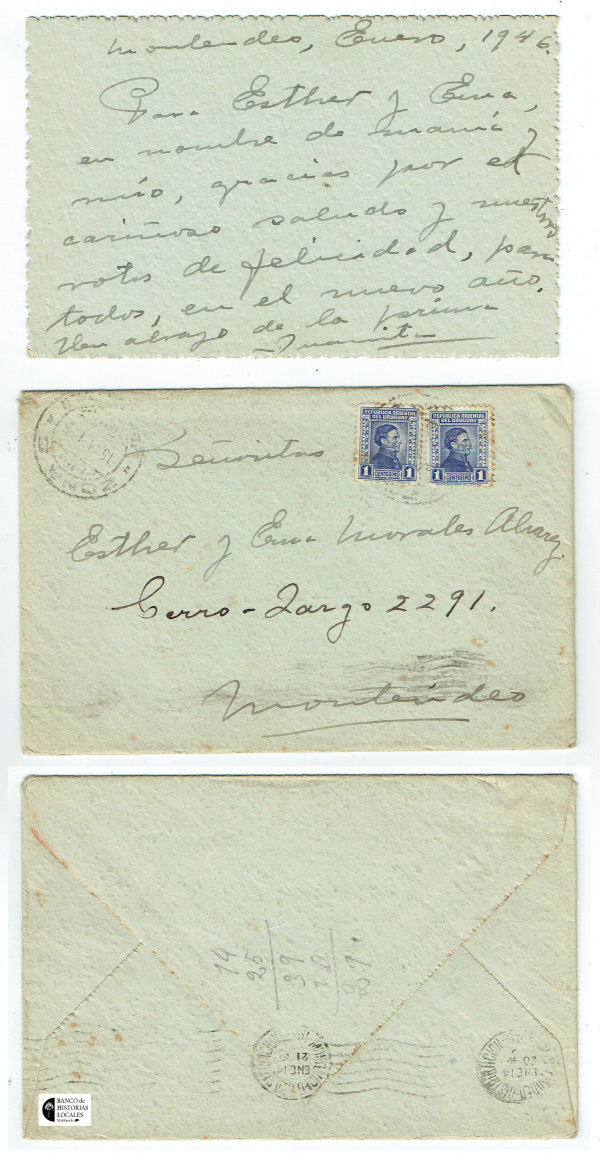 Montevideo, Enero, 1946.
Para Esther y Ema,
en nombre de mamá y
mío, gracias por el
cariñoso saludo y nuestros
votos de felicidad, para
todos, en el nuevo año.
Un abrazo de la prima
Juanita
REPUBLICA ORIENTAL
DEL URUGUAY
1 CENTESIMO 1
REPUBLICA ORIENTAL
DEL URUGUAY
1 CENTESIMO 1
Señoritas
Esther y Ema Morales Alvarez.
Cerro-Largo 2291.
Montevideo
14
25
39
10
89
ENE 14
21
ENE 14
20
BANCO de
HISTORIAS
LOCALES